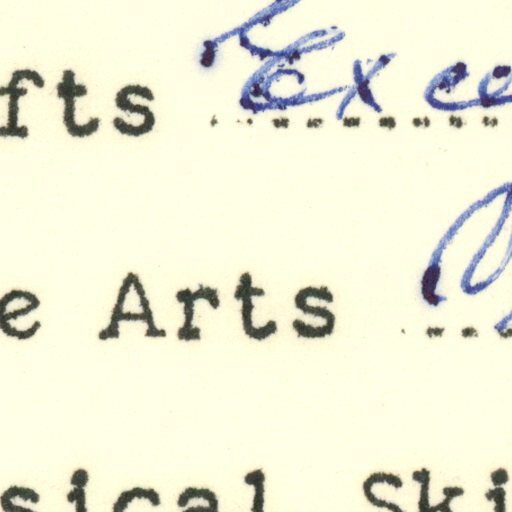 fts Exce
e Arts
sical Ski